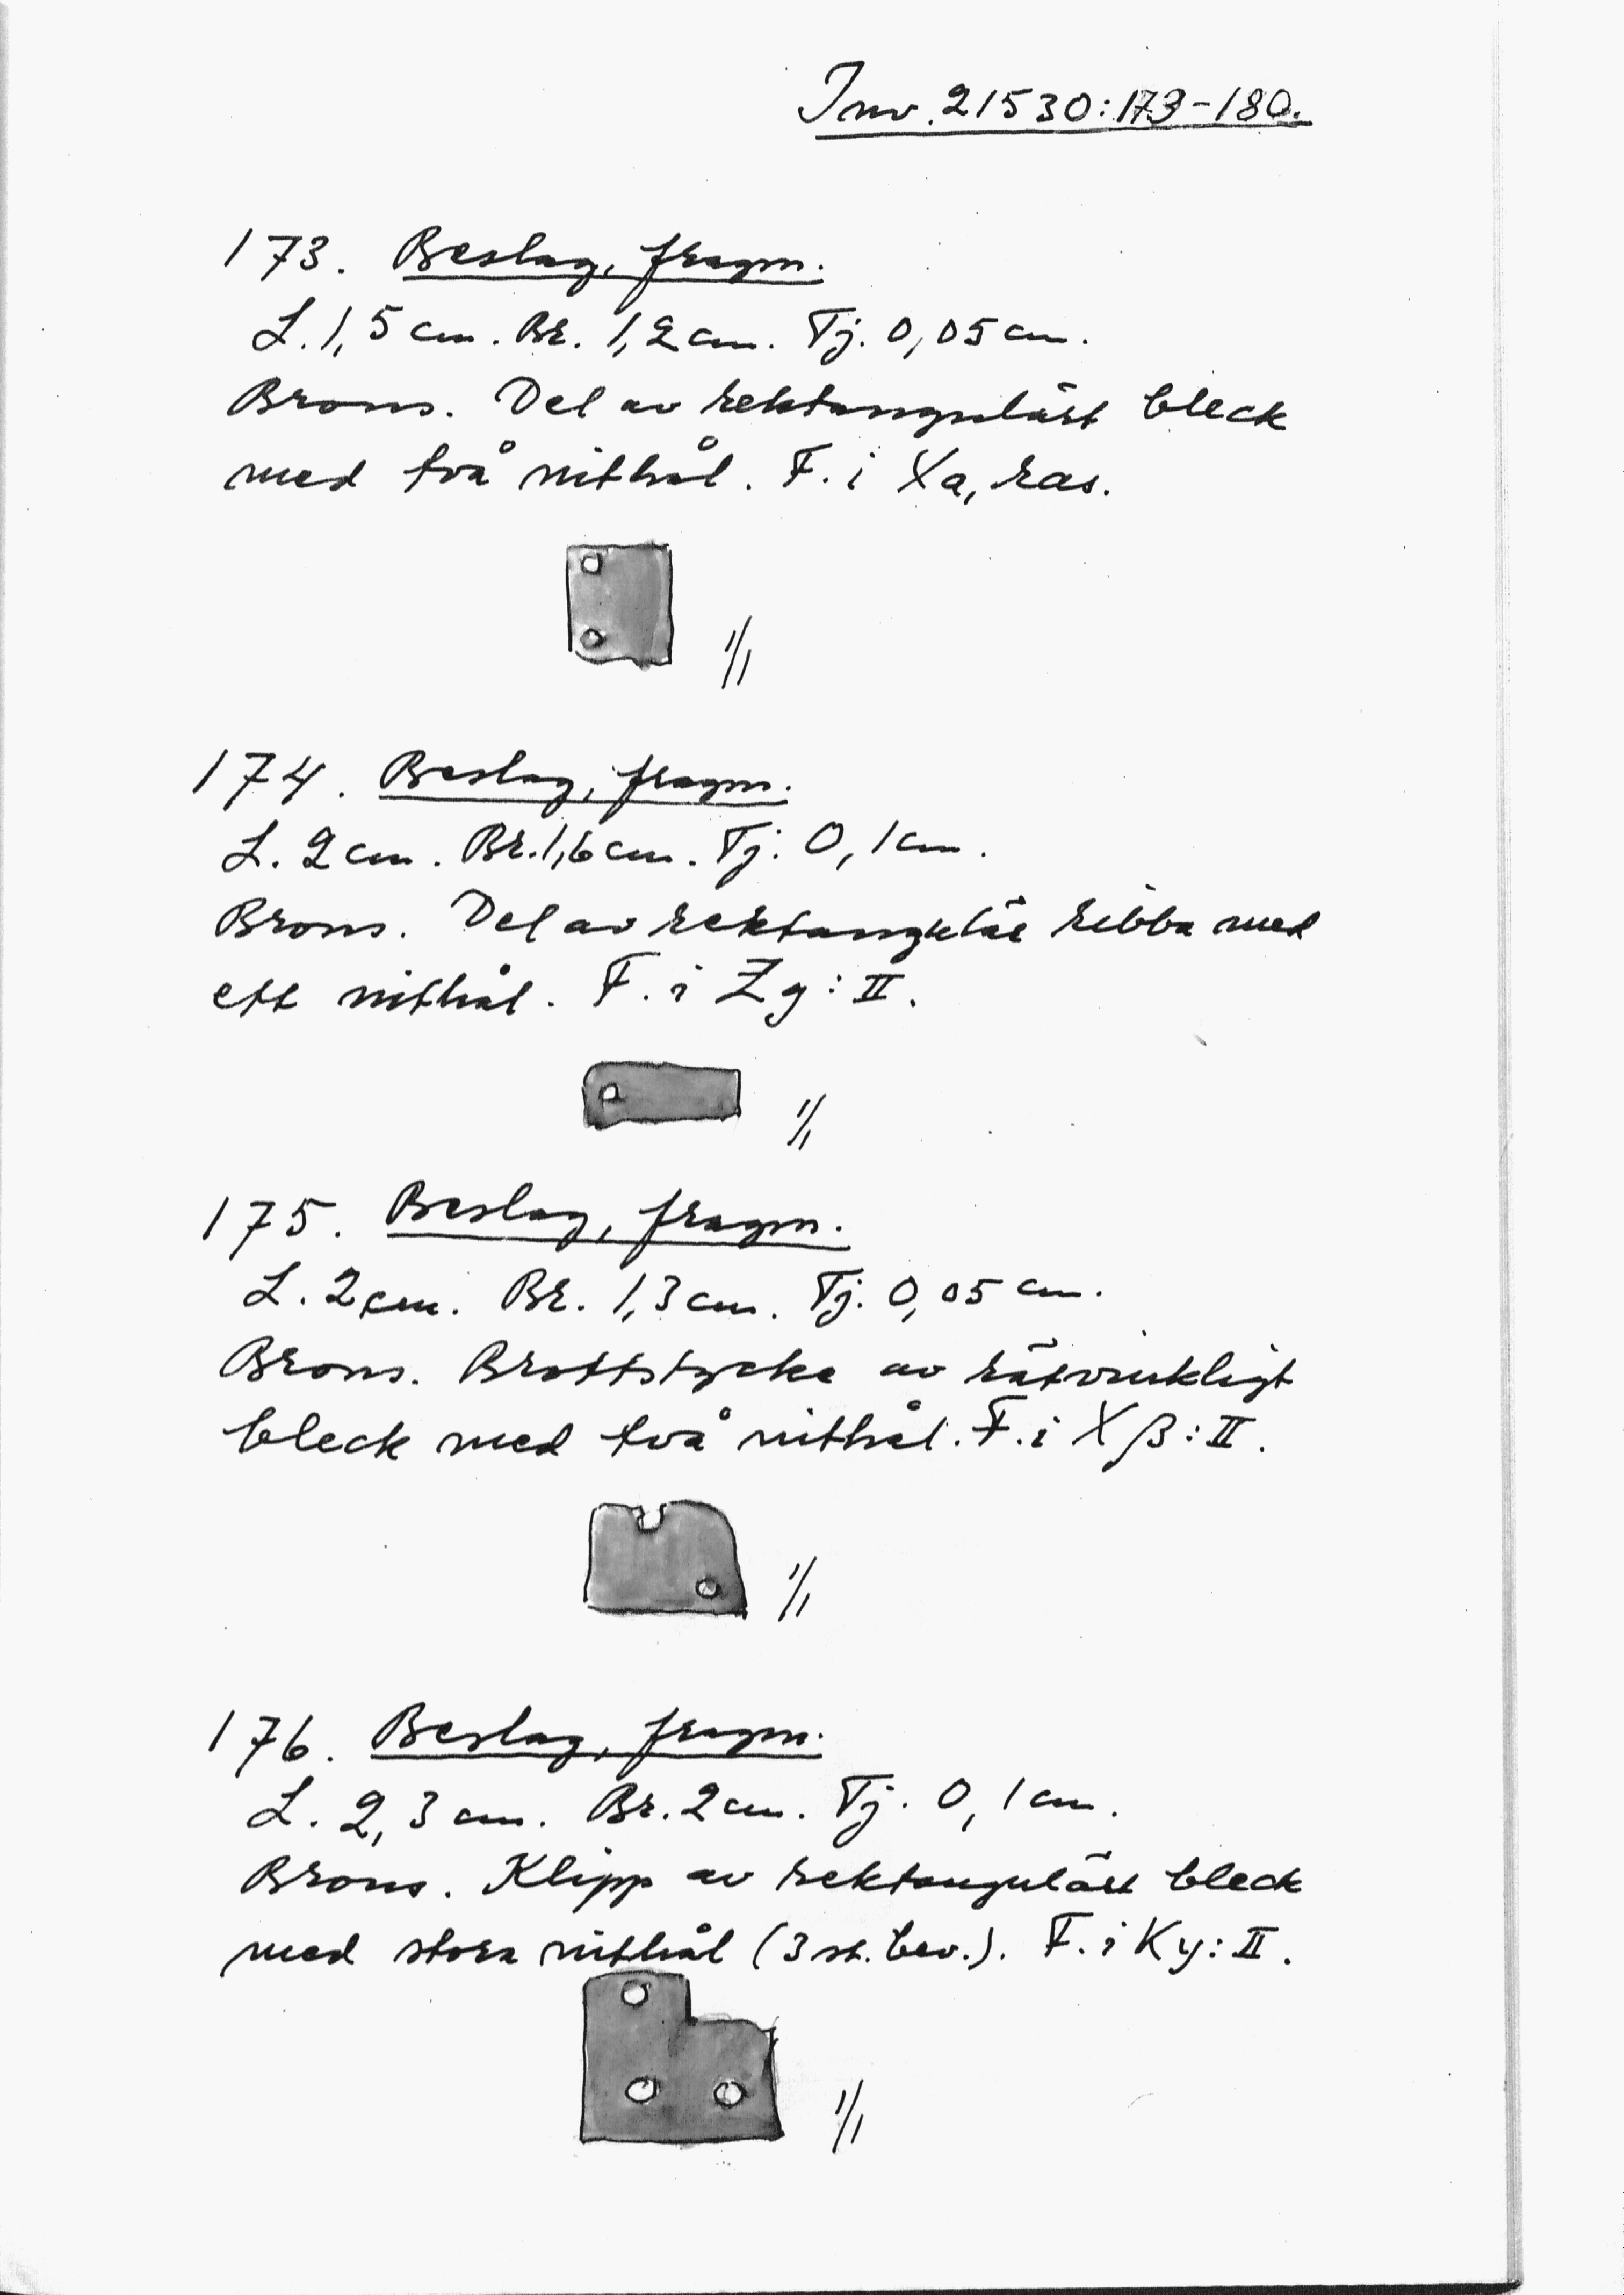 Inv. 21530:173-180.
173. Beslag, fragm.
L. 1,5 cm. Br. 1,2 cm. Tj. 0,05 cm.
Brons. Del av rektangulärt bleck
med två nithål. F. i Xa, ras.
1/1
174. Beslag, fragm.
L. 2 cm. Br. 1,6 cm. Tj. 0,1 cm.
Brons. Del av rektangulär ribba med
ett nithål. F. i Zg:II.
1/1
175. Beslag, fragm.
L. 2 cm. Br. 1,3 cm. Tj. 0,05 cm.
Brons. Brottstycke av rätvinkligt
bleck med två nithål. F. i Xβ:II.
1/1
176. Beslag, fragm.
L. 2,3 cm. Br. 2 cm. Tj. 0,1 cm.
Brons. Klipp av rektangulärt bleck
med stora nithål (3 st. bev.). F. i Ky:II.
1/1